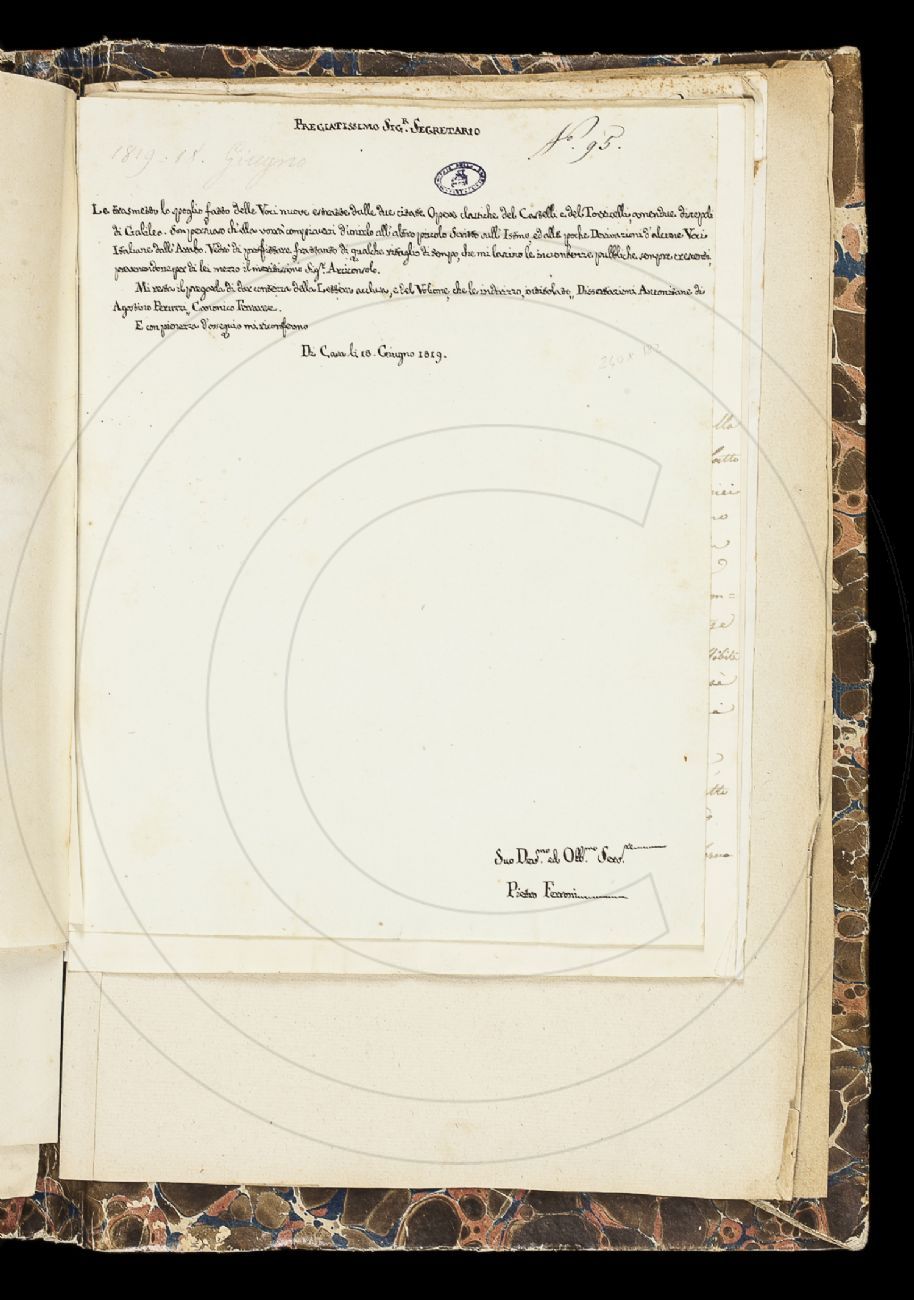 Pregiatissimo Sig.r Segretario
N.o 95.
1819. 18. Giugno
Le trasmetto lo spoglio fatto delle Voci nuove estratte dalle due citate Opere classiche del Castelli e del Torricelli, amendue discepoli
di Galileo. Son persuaso ch'ella vorrà compiacersi d'unirlo all'altro piccolo Scritto sull'Istmo, ed alle poche Derivazioni d'alcune Voci
Italiane dall'Arabo. Vedrò di profittare frattanto di qualche ritaglio di tempo, che mi lascino le incombenze pubbliche, sempre crescenti,
prevenendone per di lei mezzo il meritissimo Sig.r Arciconsolo.
Mi resta il pregarla di dar contezza della Lettera acclusa, e del Volume, che le indirizzo, intitolato „ Dissertazioni Anconitane di
Agostino Peruzzi „ Canonico Ferrarese.
E con pienezza d'ossequio mi riconfermo
Di Casa li 18. Giugno 1819.
Suo Dev.mo ed Obb.mo Serv.re
Pietro Ferroni